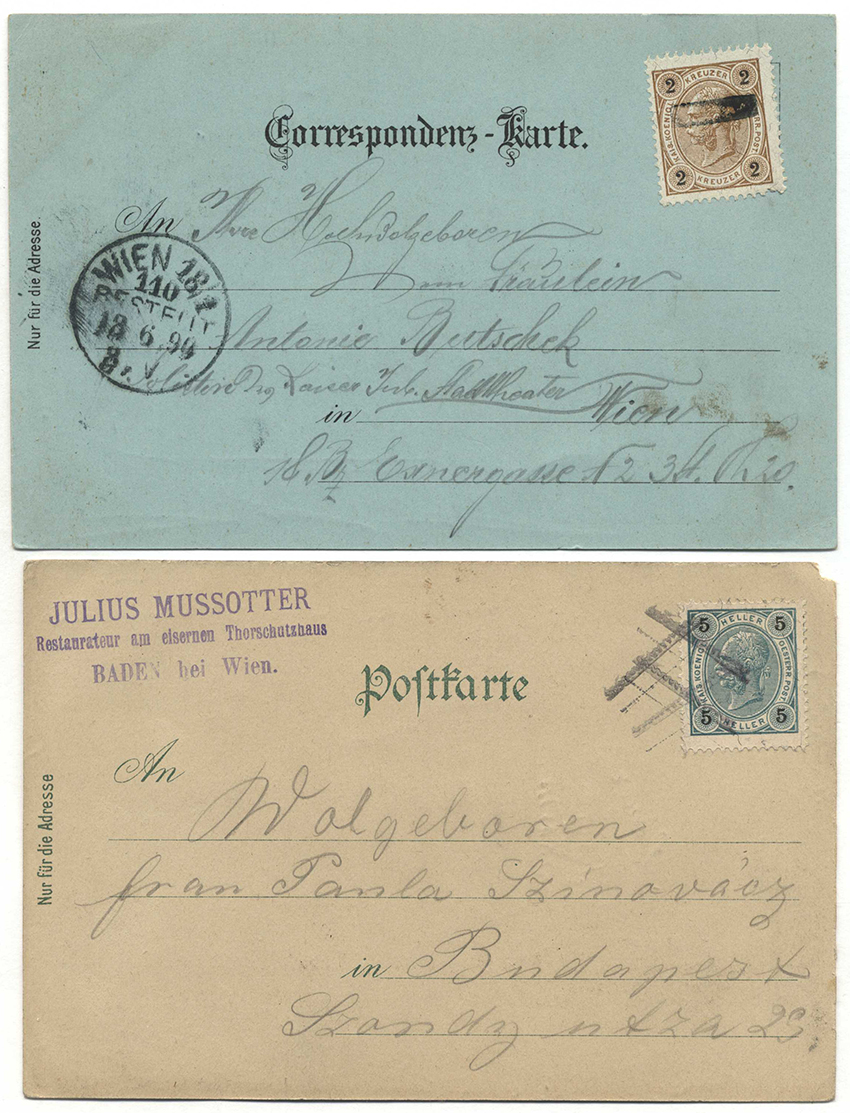 2 KREUZER 2
KAIS. KOENIGL. OESTERR. POST.
2 KREUZER 2
Correspondenz-Karte.
An Ihre Hochwolgeboren
Fräulein
Antonie Butschek
Kaiser Jub. Stadttheater
in Wien
Exnergasse 2 3 St. 20.
Nur für die Adresse.
WIEN 18/1
110
BESTELLT
18 6 99
8.V.
JULIUS MUSSOTTER
Restaurateur am eisernen Thorschutzhaus
BADEN bei Wien.
5 HELLER 5
KAIS. KOENIGL. OESTERR. POST.
5 HELLER 5
Postkarte
An
Wolgeboren
frau Paula Szinovácz
in Budapest
Szondy utza
Nur für die Adresse